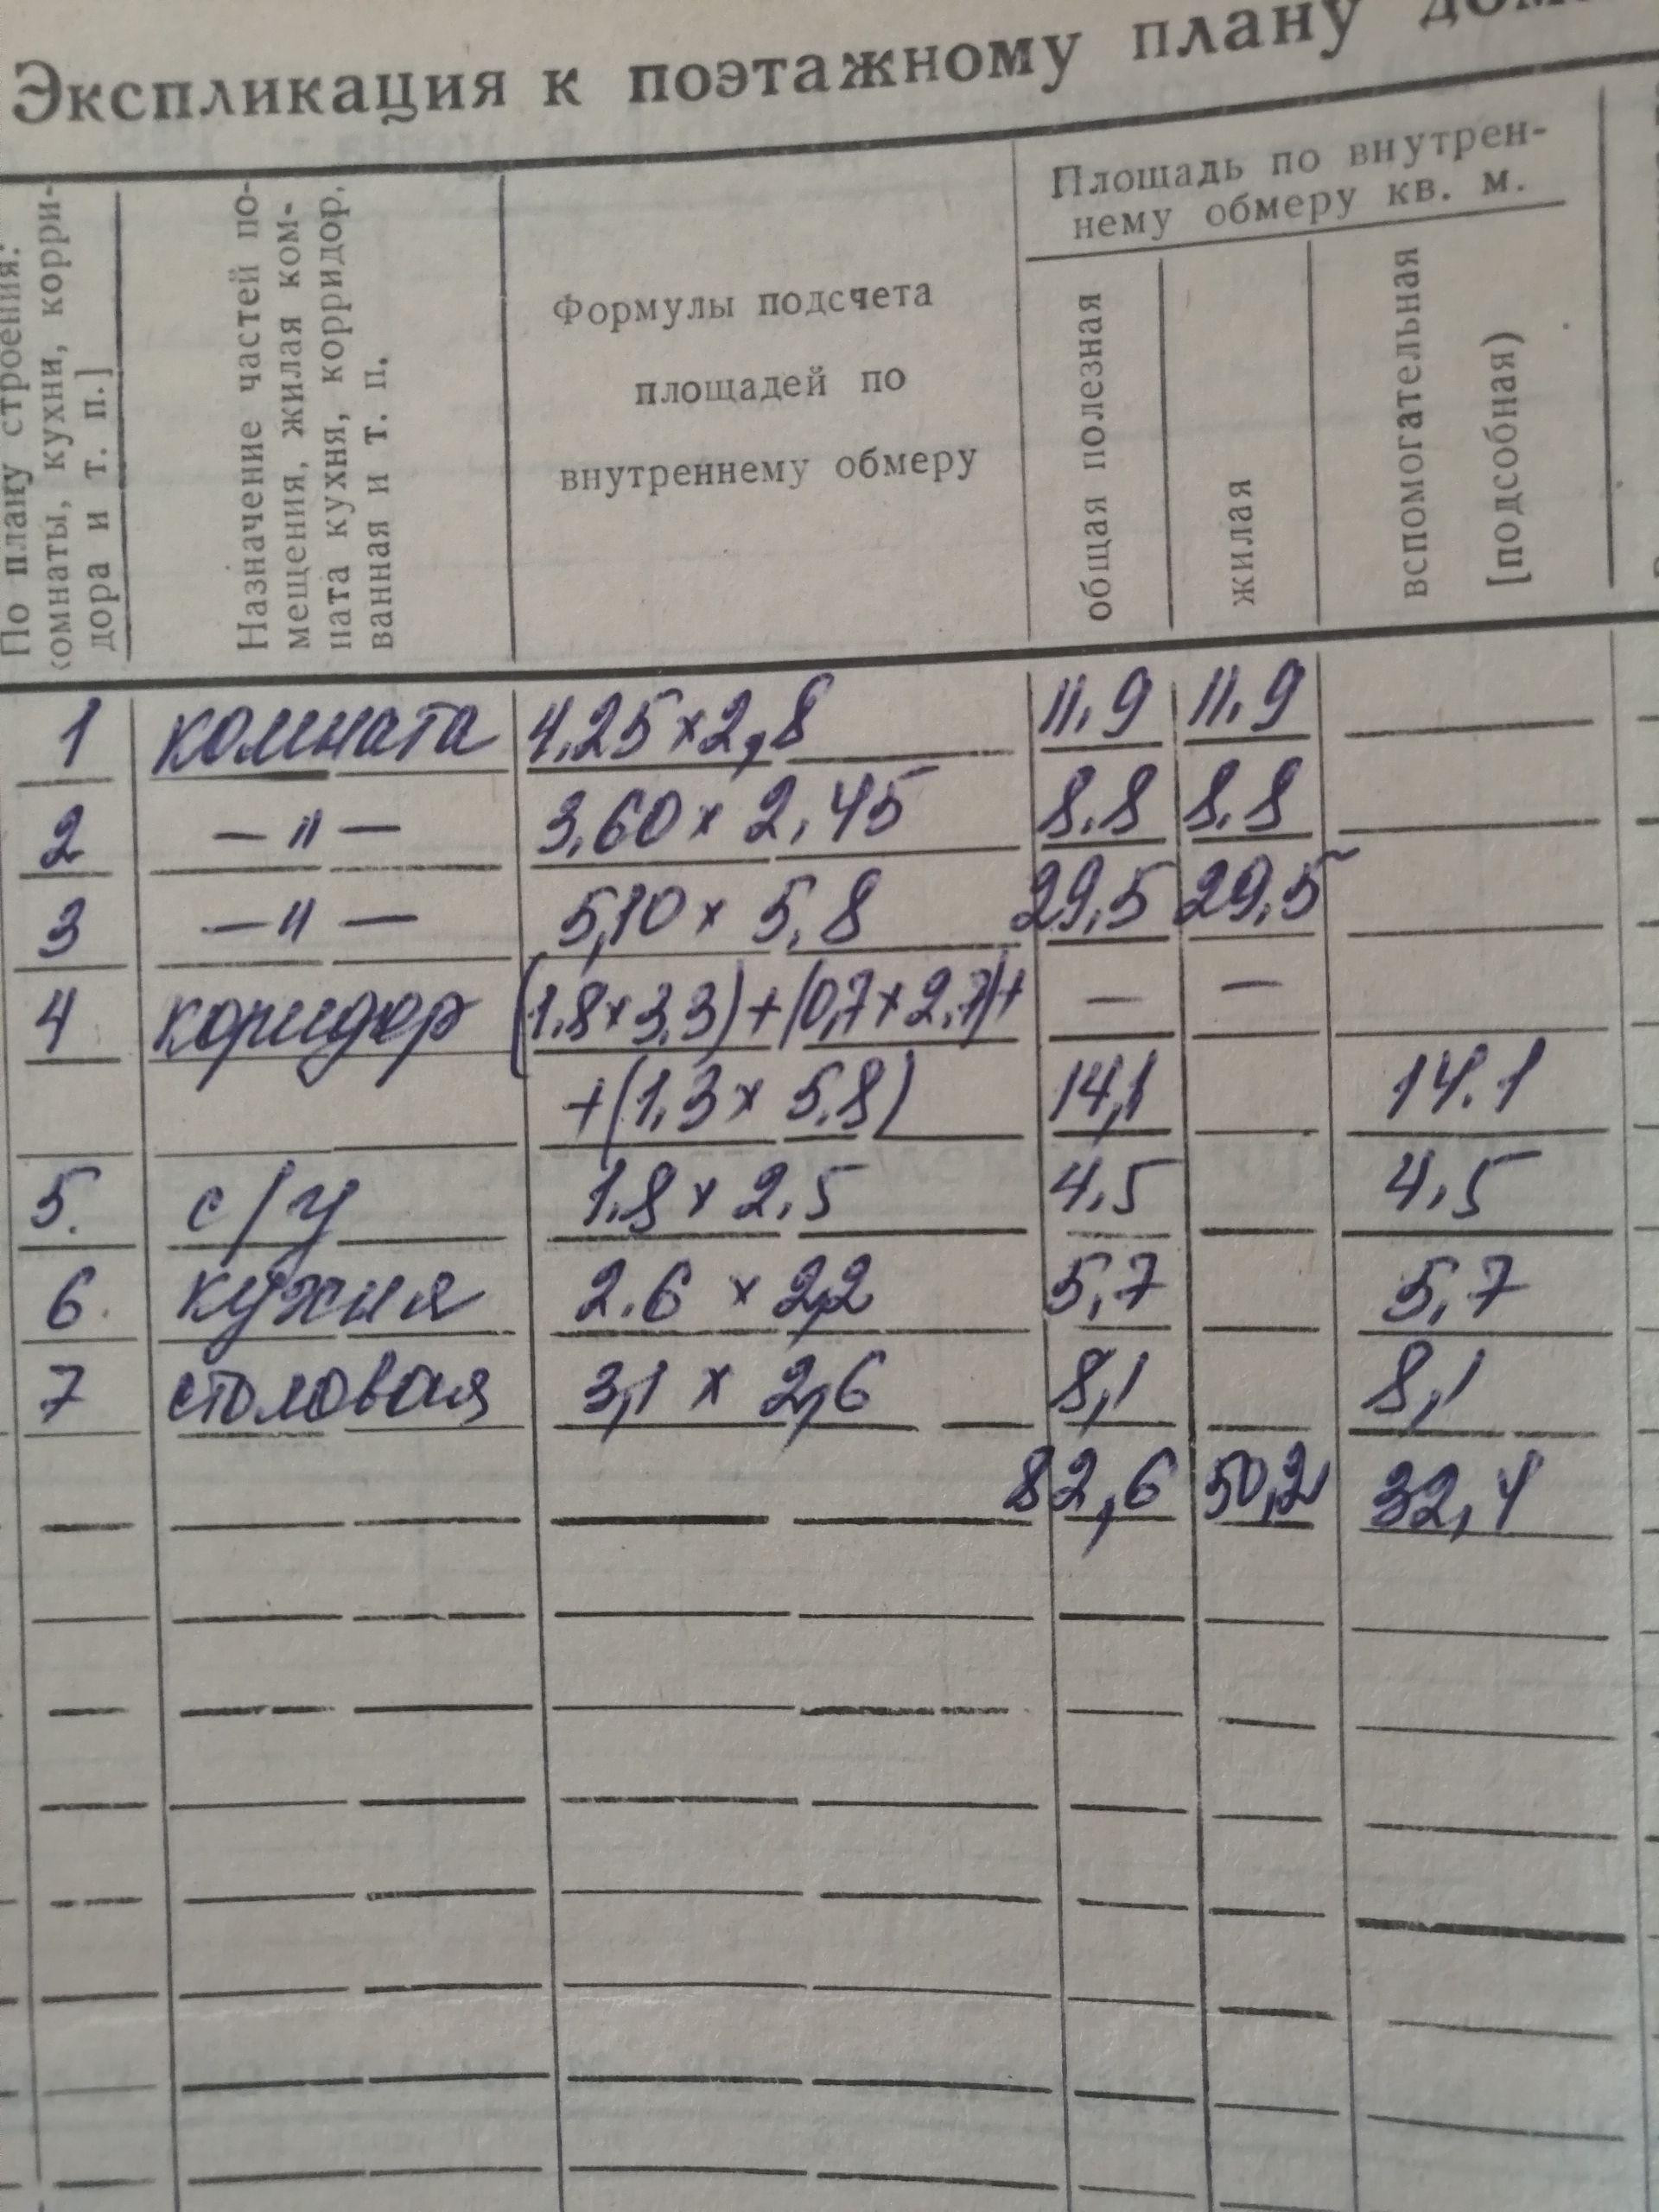 Экспликация к поэтажному плану дома
По плану строения:
комнаты, кухни, корри-
дора и т. п.]
Назначение частей по-
мещения, жилая ком-
ната кухня, корридор.
ванная и т. п.
Формулы подсчета
площадей по
внутреннему обмеру
Площадь по внутрен-
нему обмеру кв. м.
общая полезная
жилая
вспомогательная
[подсобная)
1 комната 4.25 x 2,8 11,9 11,9
2 — " — 3,60 x 2,45 8.8 8.8
3 — " — 5,10 x 5,8 29,5 29,5
4 коридор (1.8 x 3,3) + (0,7 x 2,7) + — —
+ (1,3 x 5.8) 14,1 14.1
5. с/у 1.8 x 2.5 4,5 4,5
6. кухня 2.6 x 2,2 5,7 5,7
7 столовая 3,1 x 2,6 8,1 8,1
82,6 50,2 32,4